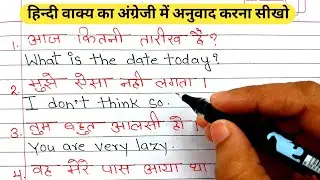 हिन्दी वाक्य का अंग्रेजी में अनुवाद करना सीखो
1. आज कितनी तारीख है?
What is the date today?
2. मुझे ऐसा नहीं लगता।
I don't think so.
3. तुम बहुत आलसी हो
You are very lazy.
4. वह मेरे पास आया था